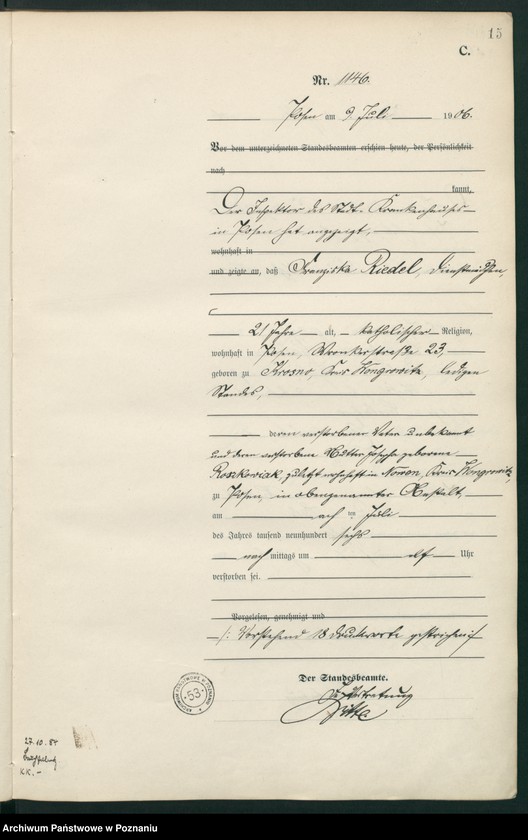 15
C.
Nr. 1146.
Posen am 9. Juli 1906.
Vor dem unterzeichneten Standesbeamten erschien heute, der Persönlichkeit
nach
kannt,
Der Inspektor des Stadt-Krankenhauses
in Posen hat angezeigt,
wohnhaft in
und zeigte an, daß Franziska Riedel, Dienstmädchen,
21 Jahre alt, katholischer Religion,
wohnhaft in Posen, Wronkerstraße 23,
geboren zu Krosno, Kreis Wongrowitz, ledigen
Standes,
deren verstorbener Vater unbekannt
und deren verstorbene Mutter Josepha geborene
Roszkowiak, zuletzt wohnhaft in Kreis Wongrowitz,
zu Posen, in obengenannter Anstalt,
am acht ten Juli
des Jahres tausend neunhundert sechs
nach mittags um elf Uhr
verstorben sei.
Vorgelesen, genehmigt und
/: Vorstehend 18 Druckworte gestrichen :/
Der Standesbeamte.
In Vertretung
53
27.10.85
K.K.-
Archiwum Państwowe w Poznaniu